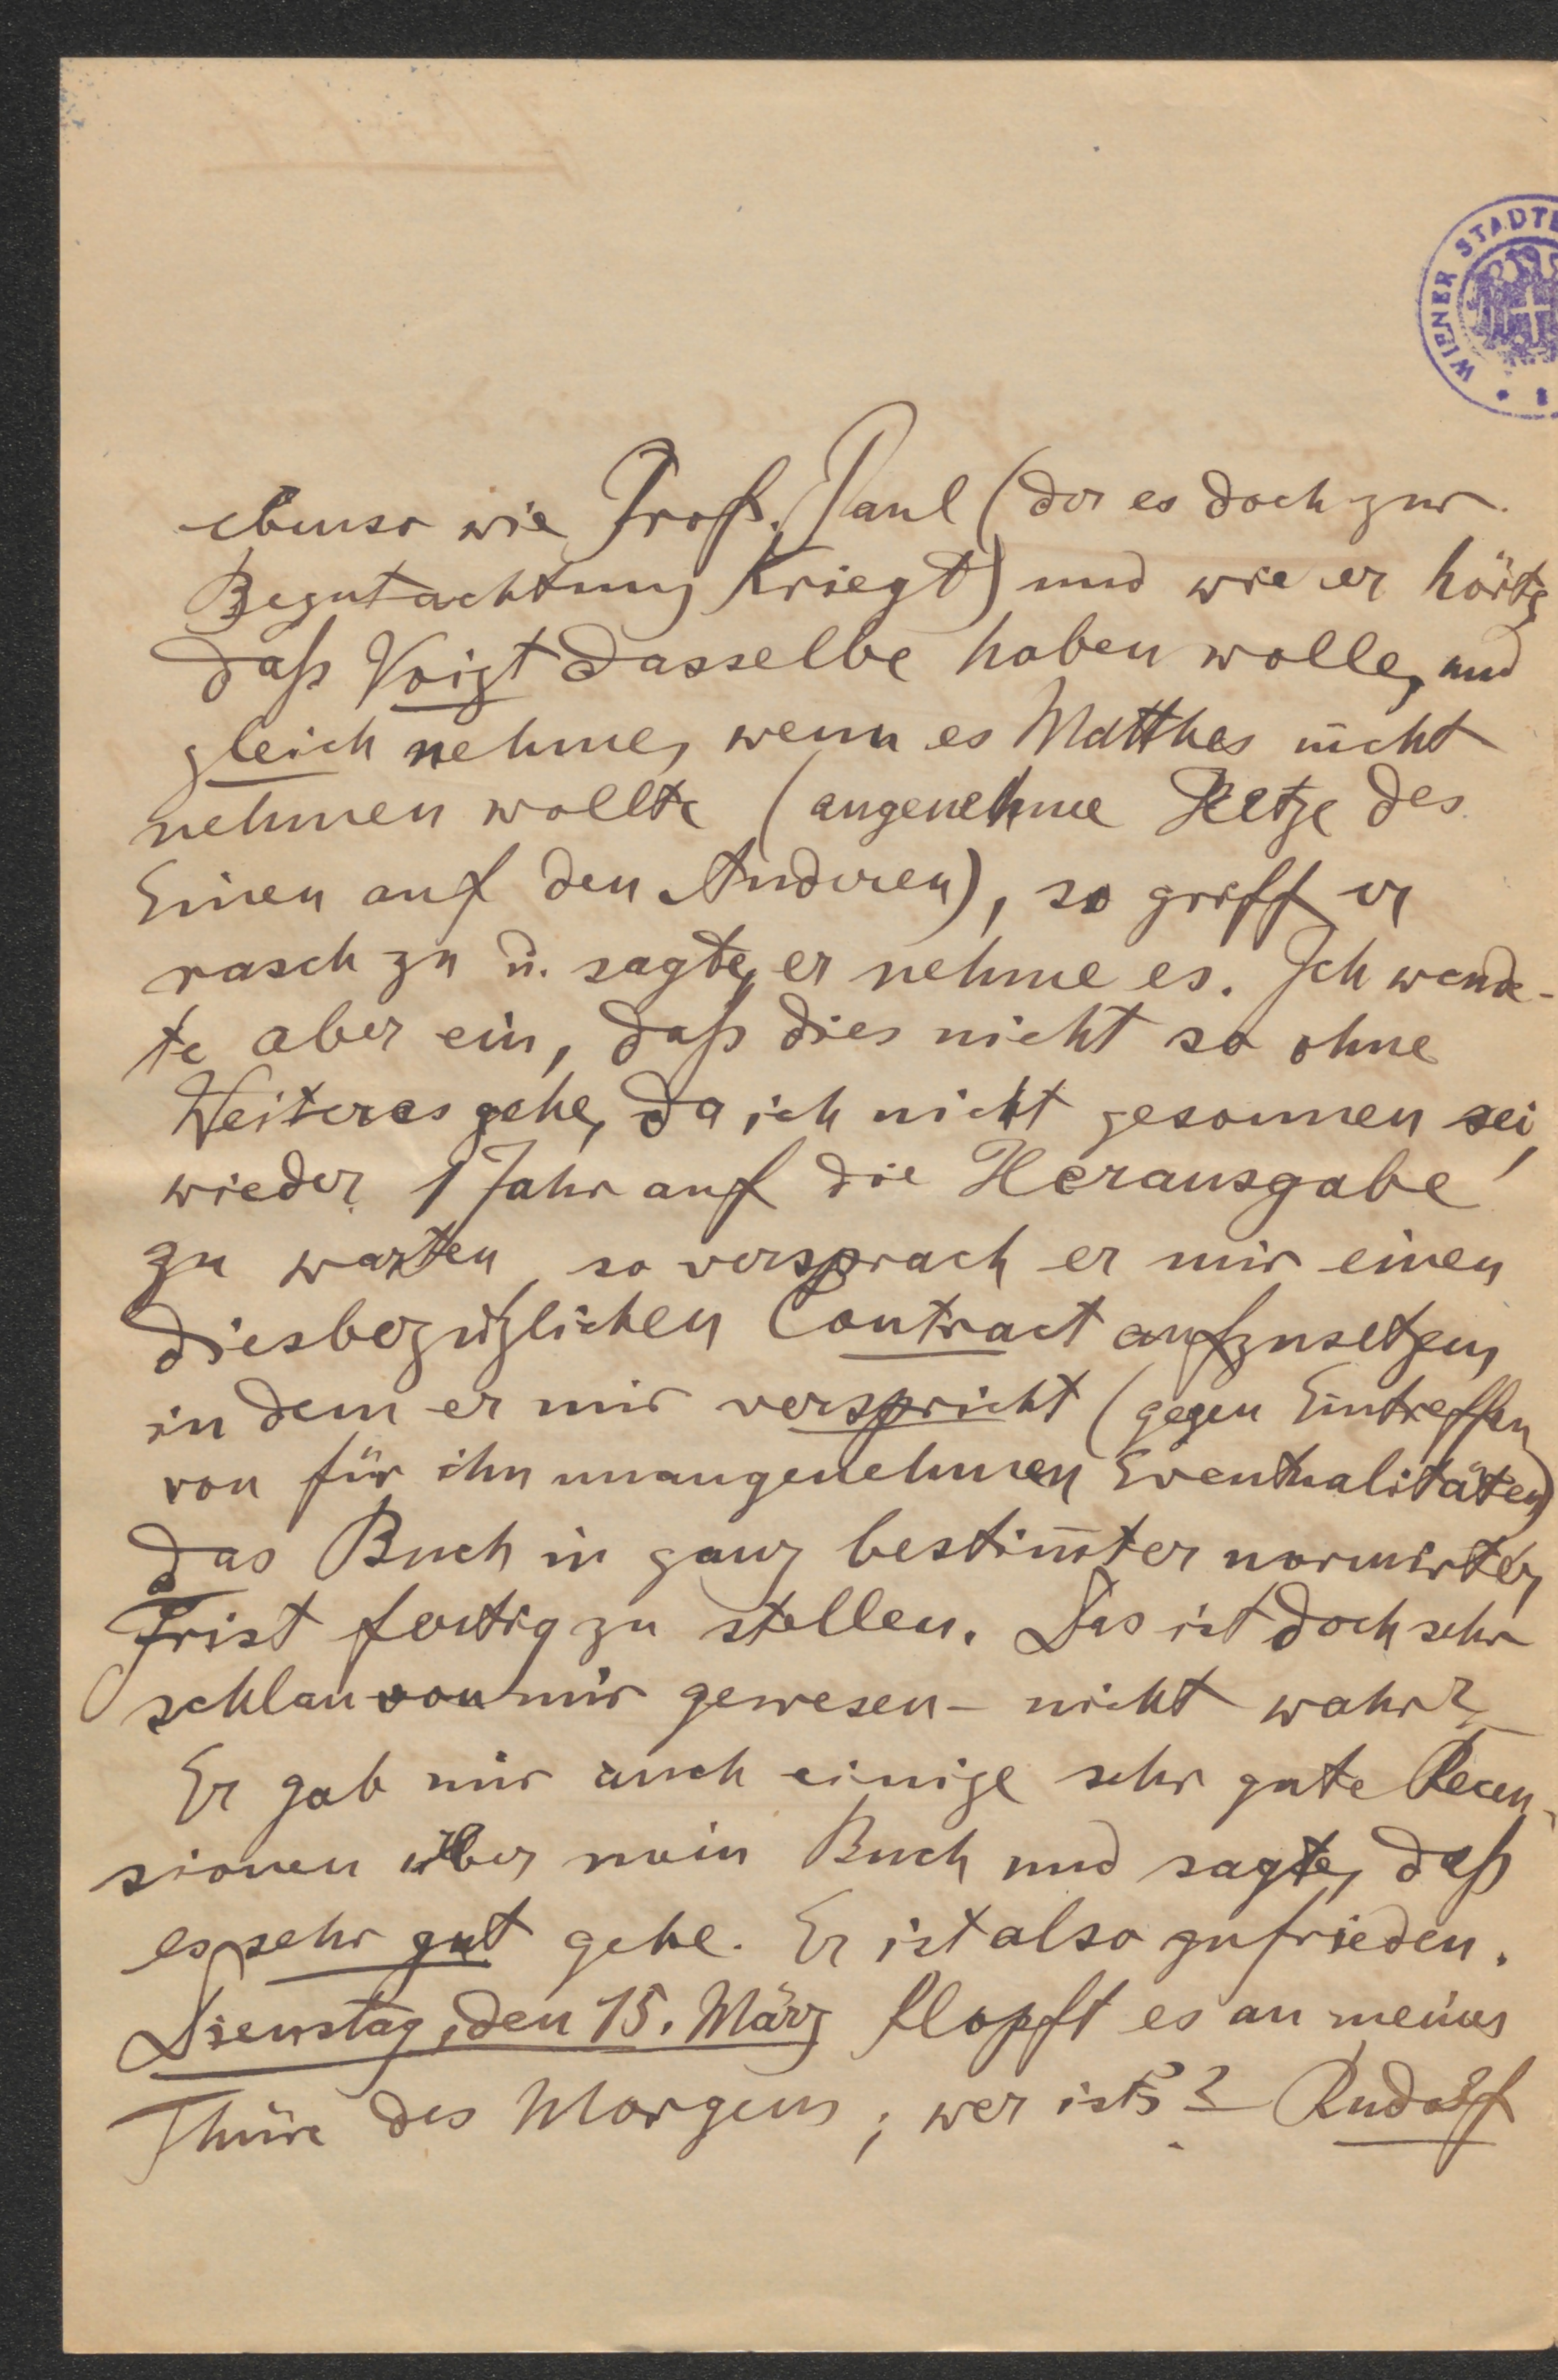 WIENER STADTB
ebenso wie Prof. Paul (der es doch zur
Begutachtung kriegt) und wie er hörte,
daß Voigt dasselbe haben wolle, und
gleich nehme, wenn es Matthes nicht
nehmen wollte (angenehme Hetze des
Einen auf den Anderen), so griff er
rasch zu u. sagte, er nehme es. Ich wende-
te aber ein, daß dies nicht so ohne
Weiteres gehe, da ich nicht gesonnen sei,
wieder 1 Jahr auf die Herausgabe
zu warten, so versprach er mir einen
diesbezüglichen Contract aufzusetzen,
in dem er mir verspricht (gegen Eintreffen
von für ihn unangenehmen Eventualitäten)
das Buch in ganz bestim̅ter normirter
Frist fertig zu stellen. Das ist doch sehr
schlau von mir gewesen – nicht wahr?
Er gab mir auch einige sehr gute Recen-
sionen über mein Buch und sagte, daß
es sehr gut gehe. Er ist also zufrieden.
Dienstag, den 15. März klopft es an meine
Thüre des Morgens; wer ists? Rudolf